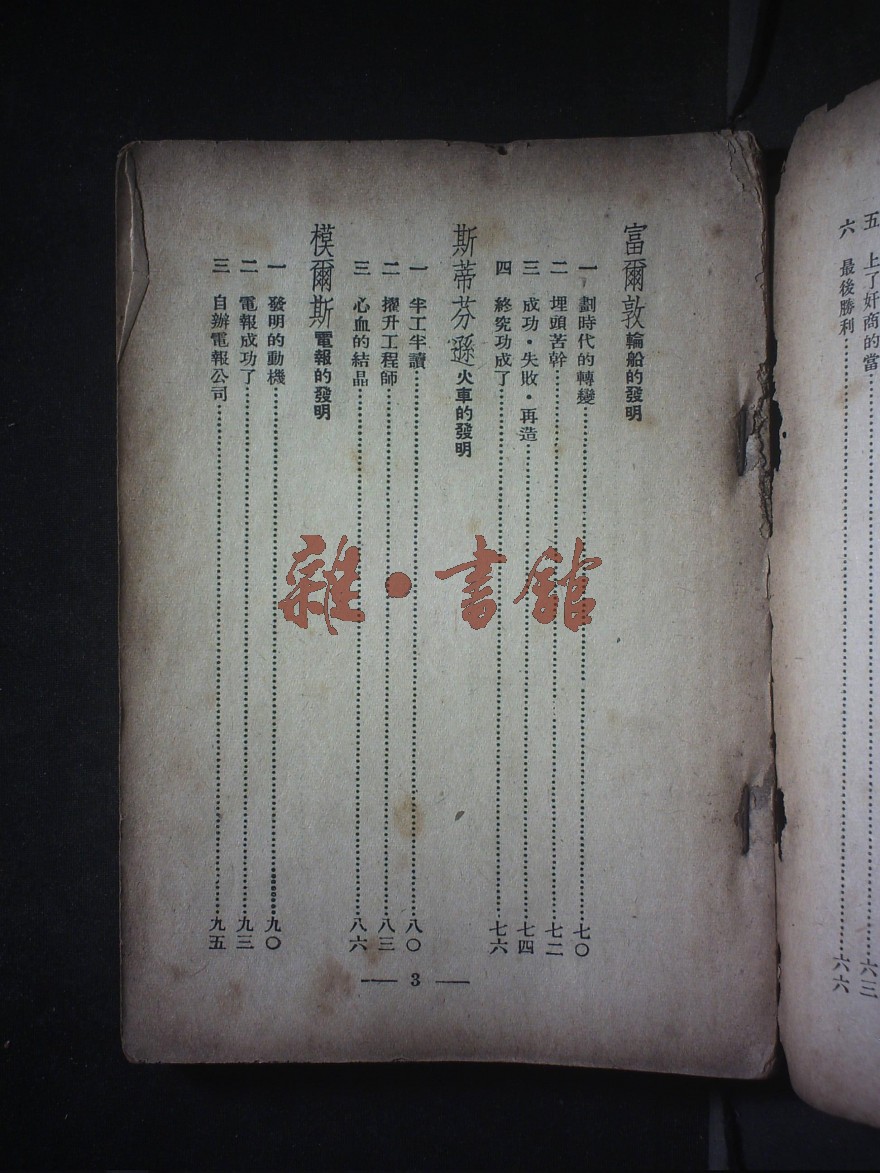 五 上了奸商的當……六三
六 最後勝利……六六
富爾敦 輪船的發明
一 劃時代的轉變……七〇
二 埋頭苦幹……七二
三 成功·失敗·再造……七四
四 終究功成了……七六
斯蒂芬遜 火車的發明
一 半工半讀……八〇
二 擢升工程師……八三
三 心血的結晶……八六
模爾斯 電報的發明
一 發明的動機……九〇
二 電報成功了……九三
三 自辦電報公司……九五
— 3 —
雜·書館